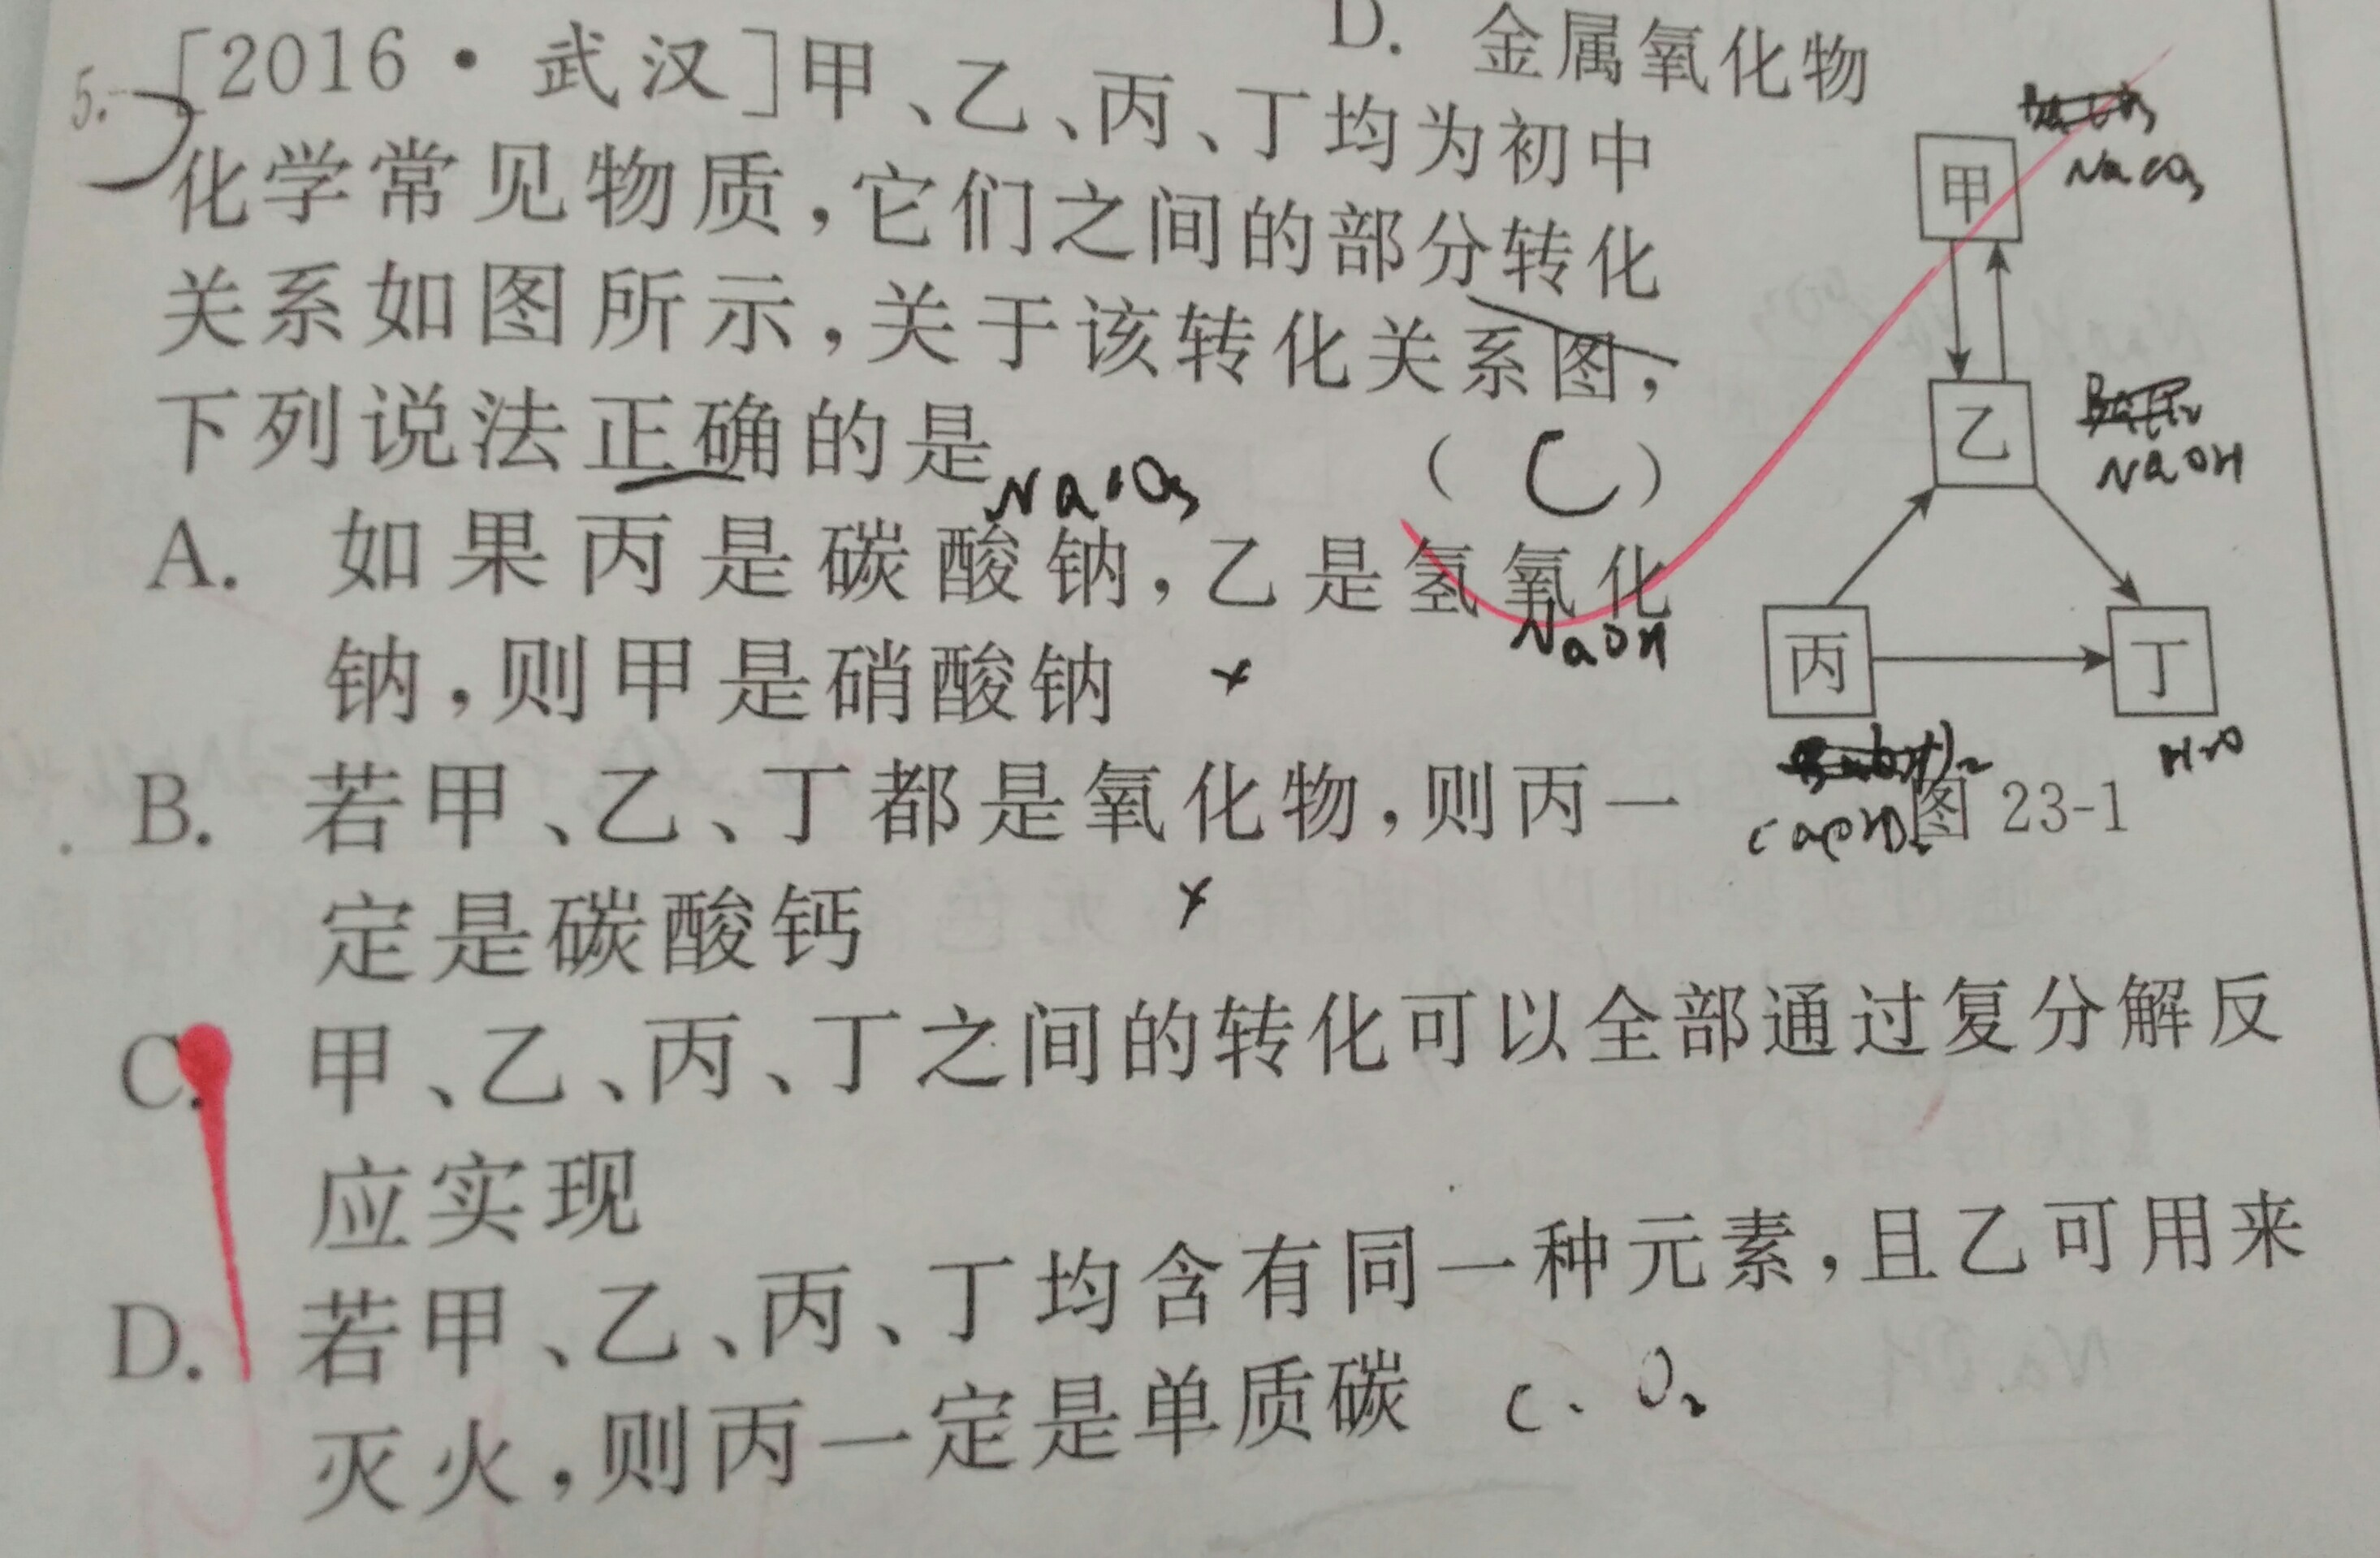 D. 金属氧化物
5. [2016·武汉]甲、乙、丙、丁均为初中
化学常见物质,它们之间的部分转化
关系如图所示,关于该转化关系图,
下列说法正确的是 ( C )
NaCO3
A. 如果丙是碳酸钠,乙是氢氧化
NaOH
钠,则甲是硝酸钠 ×
B. 若甲、乙、丁都是氧化物,则丙一
定是碳酸钙 ×
C. 甲、乙、丙、丁之间的转化可以全部通过复分解反
应实现
D. 若甲、乙、丙、丁均含有同一种元素,且乙可用来
灭火,则丙一定是单质碳 C、O2
NaCO3
甲
乙
NaOH
丙
丁
H2O
Ca(OH)2
图 23-1